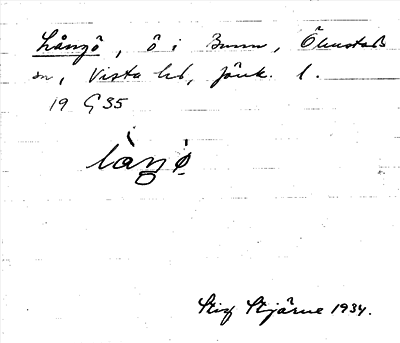 Långö, ö i Bunn, Ölmstads
sn, Vista hd, Jönk. l.
19 G 35
làŋö
Stig Stjärne 1934.